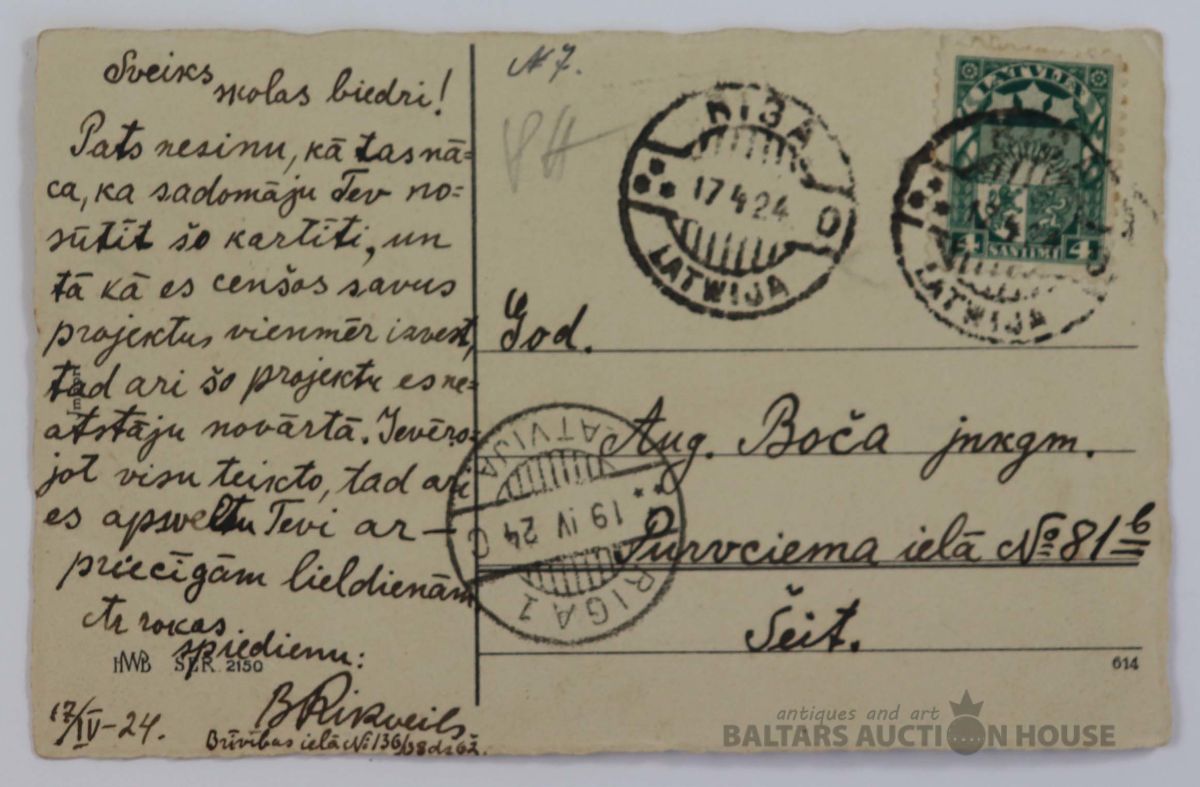 Sveiks
skolas biedri!
Pats nesinu, kā tas nā=
ca, ka sadomāju Tev no=
sūtīt šo kartīti, un
tā kā es cenšos savus
projektus vienmēr izvest,
tad ari šo projektu es ne=
atstāju novārtā. Ievēro=
jot visu teikto, tad ari
es apsveltu Tevi ar —
priecīgām lieldienām
Ar rokas
spiedienu:
HWB SER. 2150
17/IV-24.
B Rikveils
Brīvības ielā № 136/38 dz 62.
N 7.
RIGA
17 4 24
D
LATWIJA
LATVIJA
4 SANTIMI 4
LATWIJA
God.
Aug. Boča jnkgm.
Purvciema ielā № 81 b
Šeit.
LATVIJA
19 IV 24
C
RIGA 1
614
antiques and art
BALTARS AUCTION HOUSE